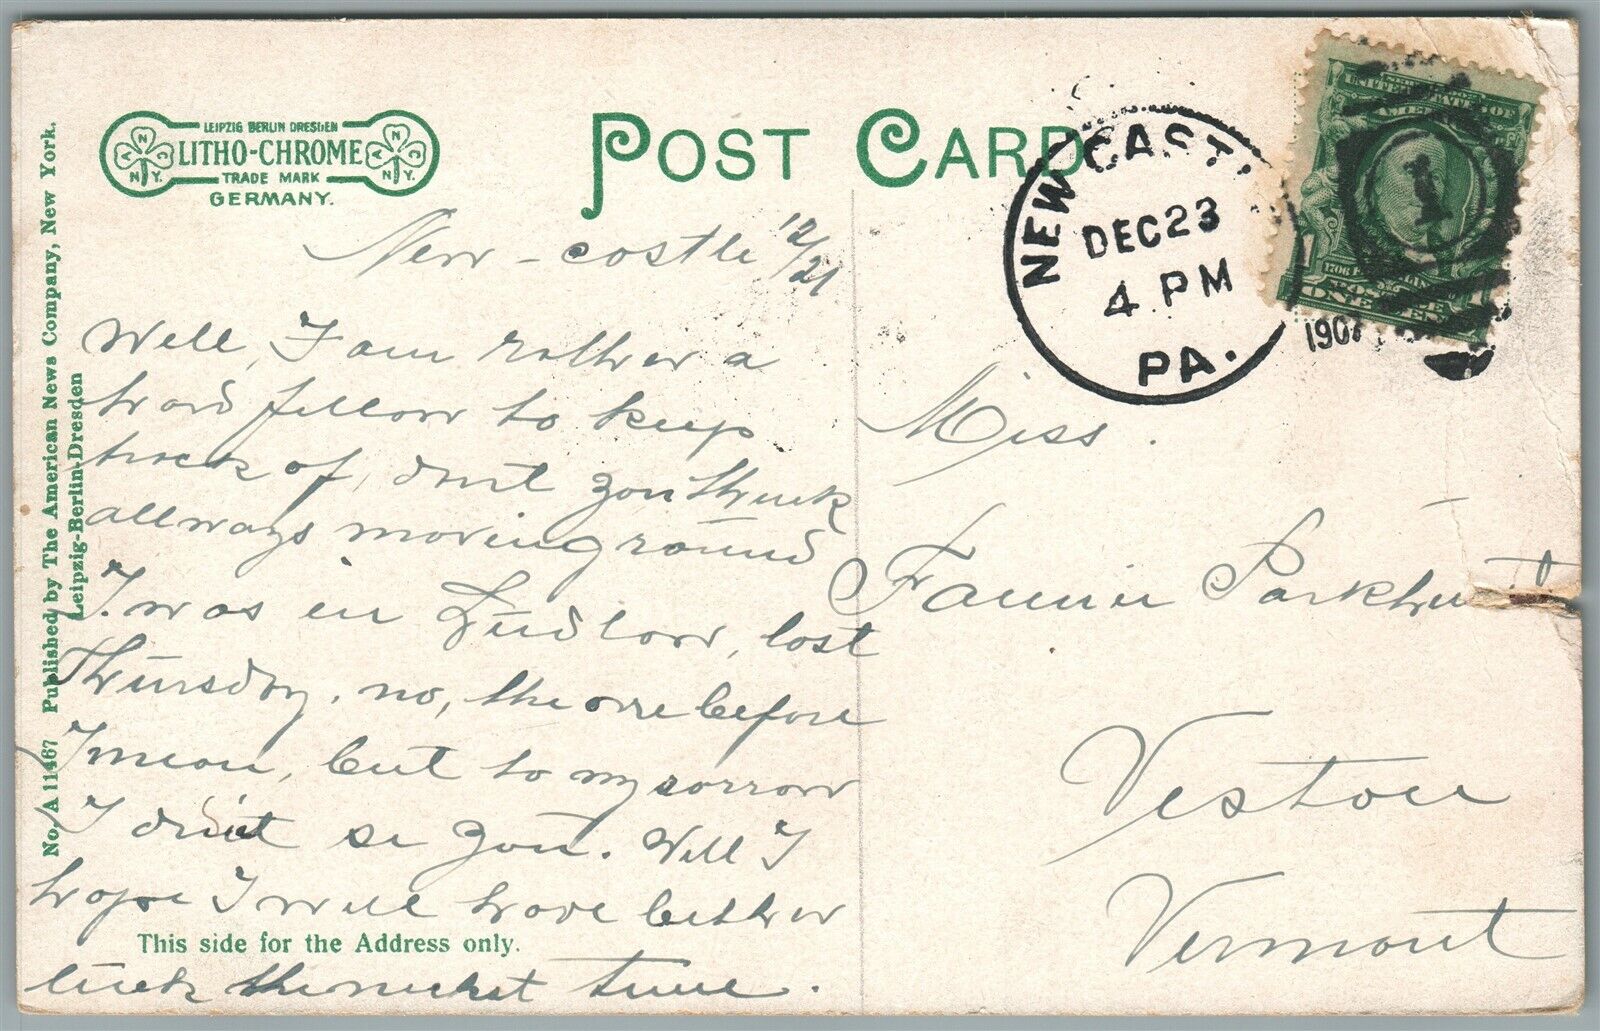 LEIPZIG BERLIN DRESDEN
LITHO-CHROME
TRADE MARK
GERMANY.
POST CARD
NEW CASTL
DEC 23
4 PM
1907
PA.
1
No. A 11467 Published by The American News Company, New York.
Leipzig-Berlin-Dresden
New-castle 12/21
Well, I am rather a
hard fellow to keep
track of, don't you think
allways moving round
I was in Ludlow, last
Thursday, no, the one before
I mean, but to my sorrow
I didn't se you. Well I
hope I will have bether
luck the next time.
This side for the Address only.
Miss.
Fannie Parkhurst
Weston
Vermont